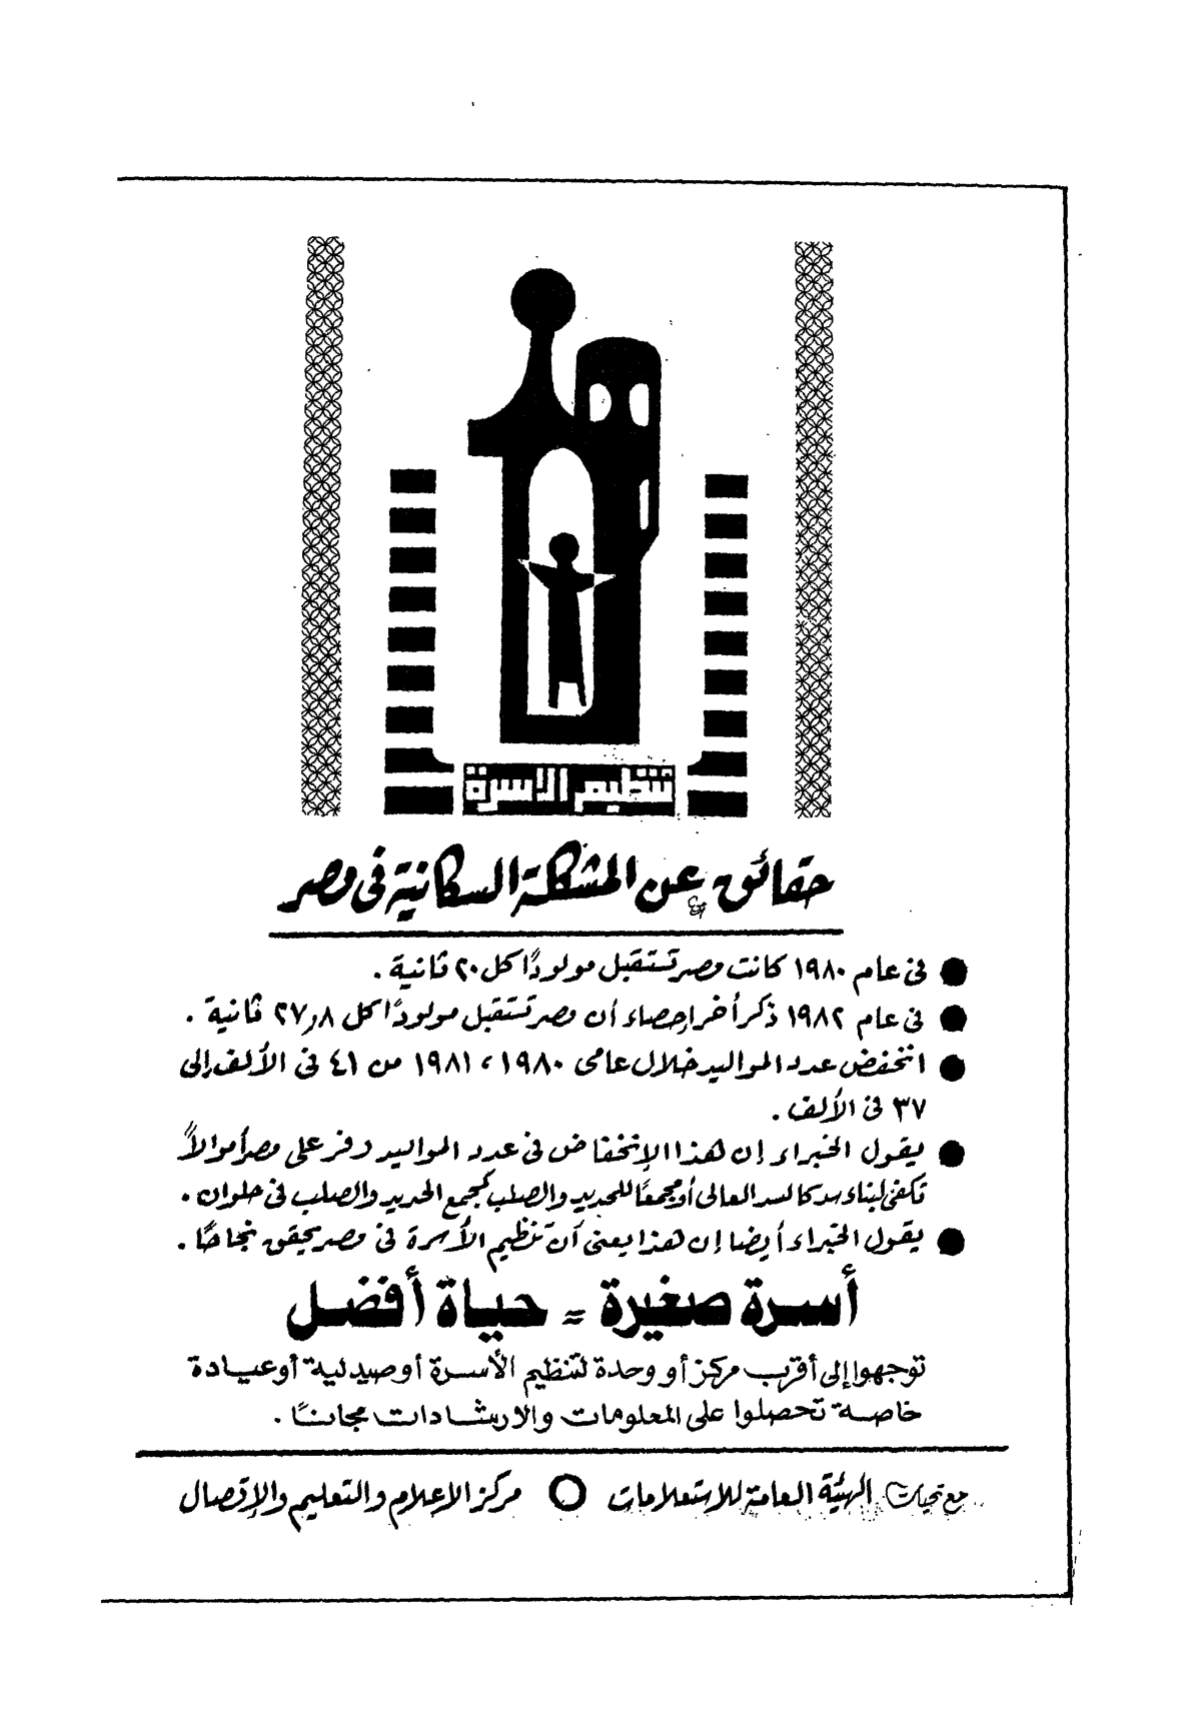 تنظيم الاسرة
حقائق عن المشكلة السكانية فى مصر
● فى عام ١٩٨٠ كانت مصر تستقبل مولودًا كل ٢٠ ثانية .
● فى عام ١٩٨٢ ذكر أخر إحصاء أن مصر تستقبل مولودًا كل ٢٧٫٨ ثانية .
● انخفض عدد المواليد خلال عامى ١٩٨٠ ، ١٩٨١ من ٤١ فى الألف إلى
٣٧ فى الألف .
● يقول الخبراء إن هذا الإنخفاض فى عدد المواليد وفر على مصر أموالاً
تكفى لبناء سد كالسد العالى أو مجمعًا للحديد والصلب كمجمع الحديد والصلب فى حلوان .
● يقول الخبراء أيضا إن هذا يعنى أن تنظيم الأسرة فى مصر يحقق نجاحًا .
أسرة صغيرة = حياة أفضل
توجهوا إلى أقرب مركز أو وحدة لتنظيم الأسرة أو صيدلية أو عيادة
خاصة تحصلوا على المعلومات والارشادات مجانًا .
مع تحيات الهيئة العامة للاستعلامات ○ مركز الإعلام والتعليم والإتصال